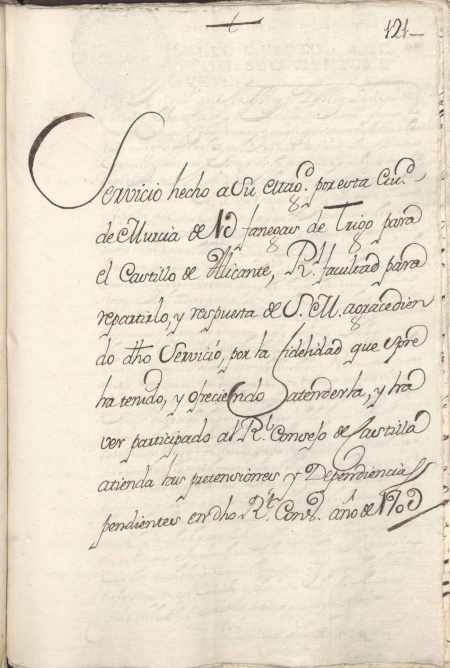 121
Servicio hecho a Su Magd. por esta Ciud.
de Murcia de fanegas de Trigo para
el Castillo de Alicante, Rl. facultad para
repartirlo, y respuesta de S. M. agradecien
do dho Servicio, por la fidelidad que spre
ha tenido, y ofreciendo atenderla, y ha
ver participado al Rl. Consejo de Castilla
atienda las pretensiones y Dependencias
pendientes en dho Rl. Cons. año de